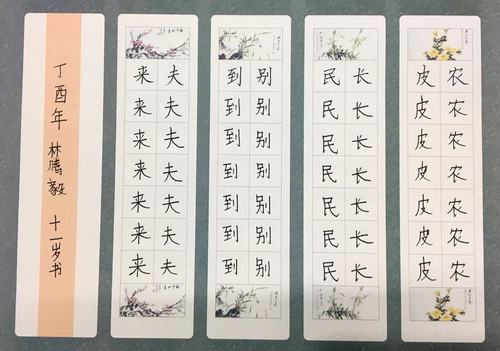 农农农农农农农
皮皮皮皮皮皮皮
长长长长长长长
民民民民民民民
别别别别别别别
到到到到到到到
夫夫夫夫夫夫夫
来来来来来来来
丁酉年 林腾毅 十一岁书